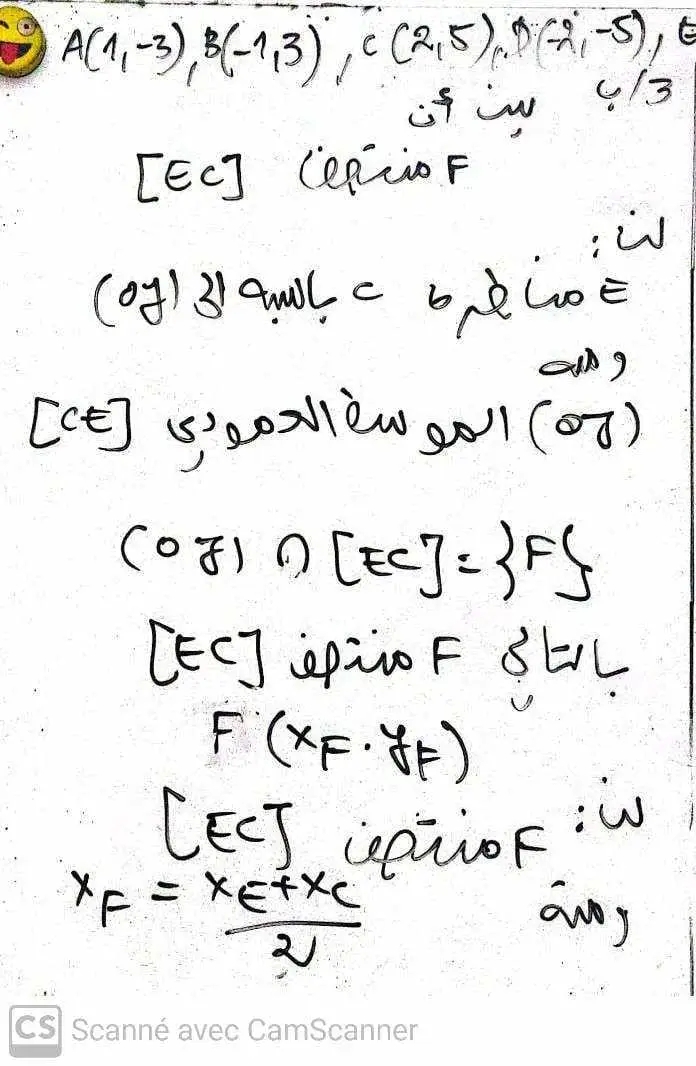 A(1,-3), B(-1,3), C(2,5), D(-2,-5), E
3/ب بين أن
F منتصف [EC]
لدينا:
E مناظرة C بالنسبة إلى (oy)
ومنه
(oy) الموسط العمودي [CE]
(oy) ∩ [EC] = {F}
بالتالي F منتصف [EC]
F (xF . yF)
لدينا: F منتصف [EC]
ومنه xF = xE+xC / 2
CS Scanné avec CamScanner